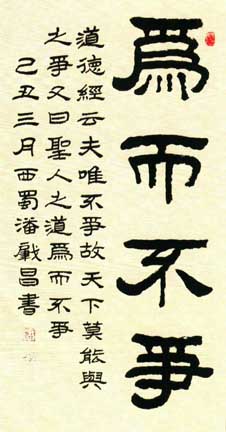 爲而不爭
道德經云夫唯不爭故天下莫能與
之爭又曰聖人之道爲而不爭
己丑三月西蜀潘昌書